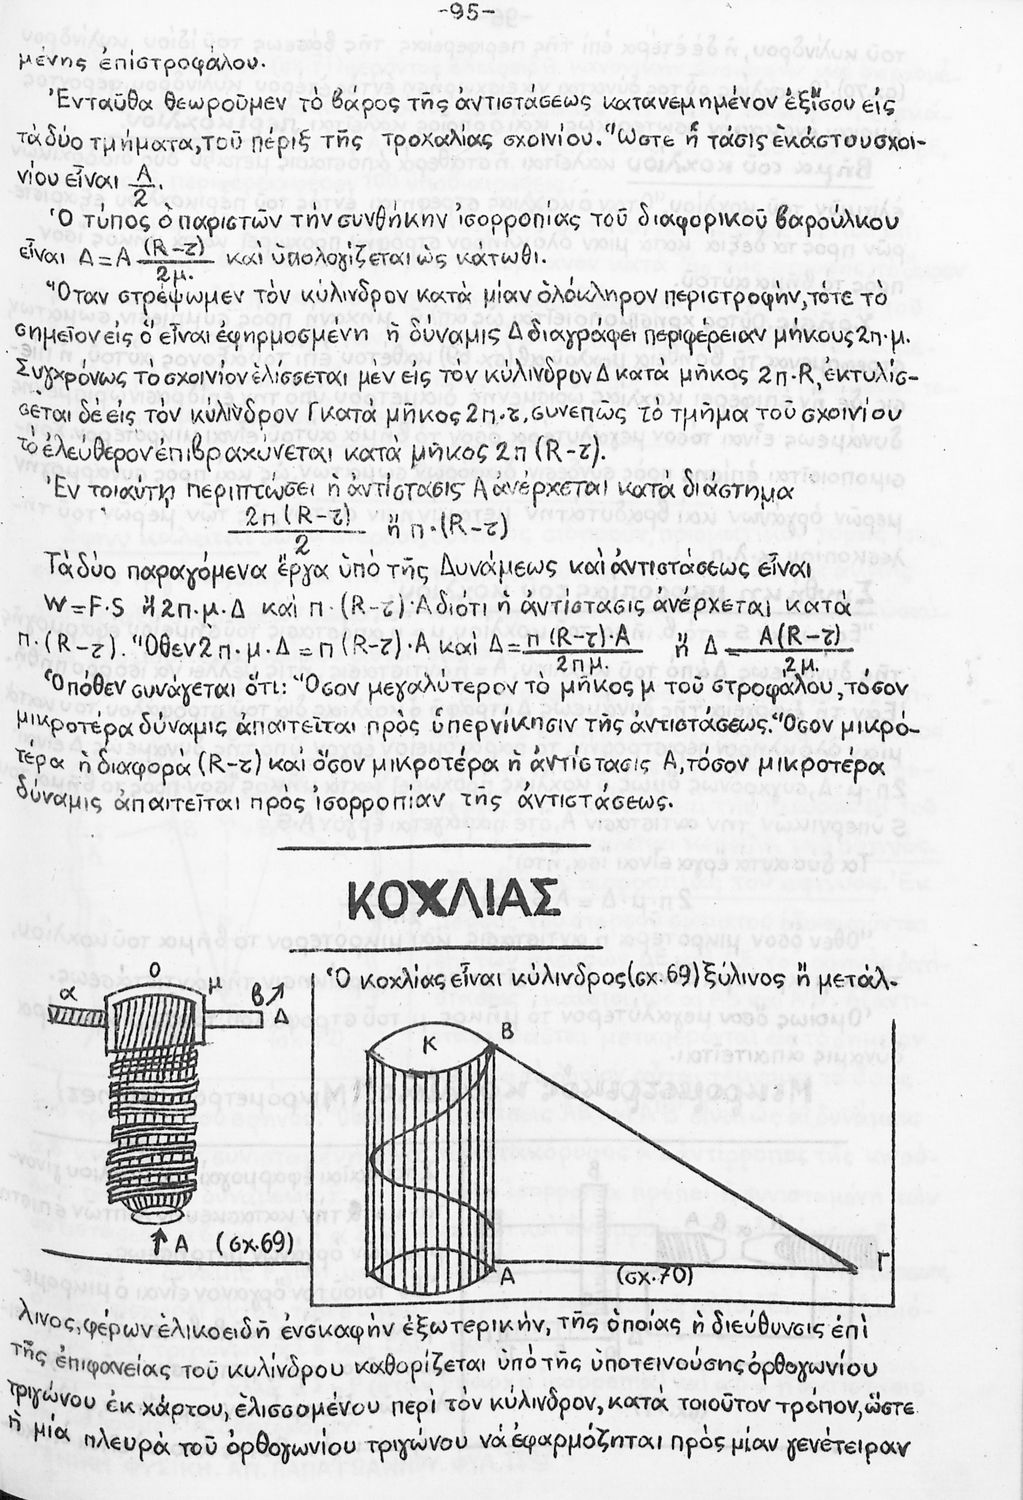 -95-
μένης ἐπιστροφάλου.
Ἐνταῦθα θεωροῦμεν τὸ βάρος τῆς ἀντιστάσεως κατανεμημένον ἐξἴσου εἰς
τὰ δύο τμήματα, τοῦ πέριξ τῆς τροχαλίας σχοινίου. Ὥστε ἡ τάσις ἑκάστου σχοι-
νίου εἶναι Α/2.
Ὁ τύπος ὁ παριστῶν τὴν συνθήκην ἰσορροπίας τοῦ διαφορικοῦ βαρούλκου
εἶναι Δ=Α (R-τ)/2μ. καὶ ὑπολογίζεται ὡς κάτωθι.
Ὅταν στρέψωμεν τὸν κύλινδρον κατὰ μίαν ὁλόκληρον περιστροφὴν, τότε τὸ
σημεῖον εἰς ὅ εἶναι ἐφηρμοσμένη ἡ δύναμις Δ διαγράφει περιφέρειαν μήκους 2π·μ.
Συγχρόνως τὸ σχοινίον ἑλίσσεται μὲν εἰς τὸν κύλινδρον Δ κατὰ μῆκος 2π·R, ἐκτυλίσ-
σεται δὲ εἰς τὸν κύλινδρον Γ κατὰ μῆκος 2π·τ, συνεπῶς τὸ τμῆμα τοῦ σχοινίου
τὸ ἐλεύθερον ἐπιβραχύνεται κατὰ μῆκος 2π (R-τ).
Ἐν τοιαύτῃ περιπτώσει ἡ ἀντίστασις Α ἀνέρχεται κατὰ διάστημα
2π(R-τ)/2 ἤ π·(R-τ)
Τὰ δύο παραγόμενα ἔργα ὑπὸ τῆς Δυνάμεως καὶ ἀντιστάσεως εἶναι
W=F·S ἤ 2π·μ·Δ καὶ π·(R-τ)·Α διότι ἡ ἀντίστασις ἀνέρχεται κατὰ
π·(R-τ). Ὅθεν 2π·μ·Δ=π(R-τ)·Α καὶ Δ=π(R-τ)·Α/2πμ. ἤ Δ=Α(R-τ)/2μ.
Ὁπόθεν συνάγεται ὅτι: Ὅσον μεγαλύτερον τὸ μῆκος μ τοῦ στροφάλου, τόσον
μικροτέρα δύναμις ἀπαιτεῖται πρὸς ὑπερνίκησιν τῆς ἀντιστάσεως. Ὅσον μικρο-
τέρα ἡ διαφορὰ (R-τ) καὶ ὅσον μικροτέρα ἡ ἀντίστασις Α, τόσον μικροτέρα
δύναμις ἀπαιτεῖται πρὸς ἰσορροπίαν τῆς ἀντιστάσεως.
ΚΟΧΛΙΑΣ
Ὁ κοχλίας εἶναι κύλινδρος (σχ. 69) ξύλινος ἤ μετάλ-
Ο
α
μ
β
Δ
Α (σχ.69)
Κ
Β
Α
(σχ.70)
Γ
λινος, φέρων ἑλικοειδῆ ἐνσκαφὴν ἐξωτερικὴν, τῆς ὁποίας ἡ διεύθυνσις ἐπὶ
τῆς ἐπιφανείας τοῦ κυλίνδρου καθορίζεται ὑπὸ τῆς ὑποτεινούσης ὀρθογωνίου
τριγώνου ἐκ χάρτου, ἑλισσομένου περὶ τὸν κύλινδρον, κατὰ τοιοῦτον τρόπον, ὥστε
ἡ μία πλευρὰ τοῦ ὀρθογωνίου τριγώνου νὰ ἐφαρμόζηται πρὸς μίαν γενέτειραν